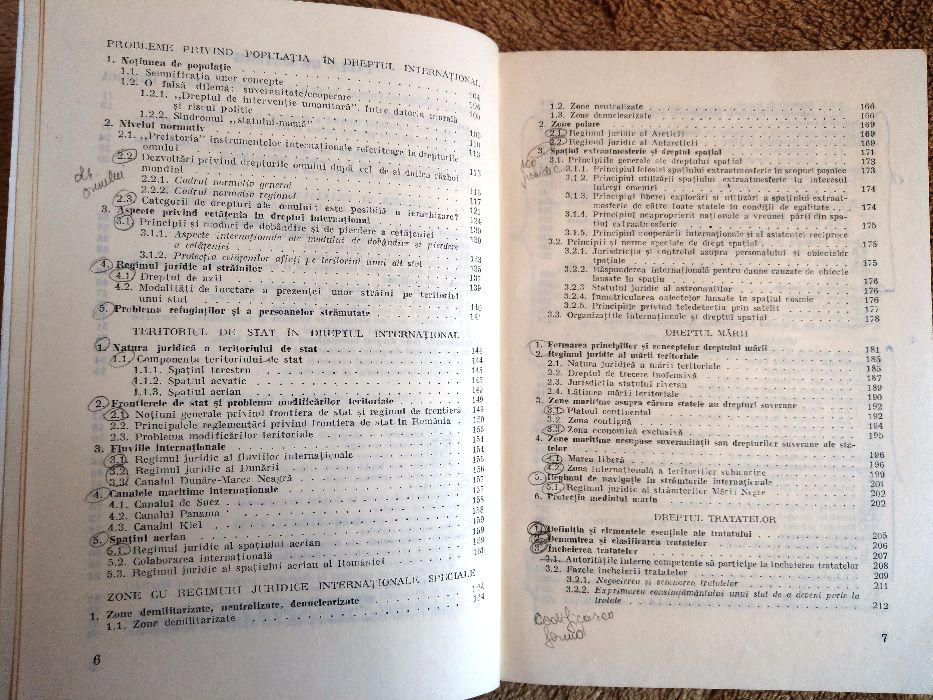 PROBLEME PRIVIND POPULAȚIA ÎN DREPTUL INTERNAȚIONAL
1. Noțiunea de populație
1.1. Semnificația unor concepte 104
1.2. O falsă dilemă: suveranitate/cooperare 104
1.2.1. „Dreptul de intervenție umanitară". Între datoria morală
și riscul politic 105
1.2.2. Sindromul „statului-mamă"
2. Nivelul normativ
2.1. „Preistoria" instrumentelor internaționale referitoare la drepturile
omului 113
2.2. Dezvoltări privind drepturile omului după cel de al doilea război
mondial
2.2.1. Cadrul normativ general
2.2.2. Cadrul normativ regional 117
2.3. Categorii de drepturi ale omului; este posibilă o ierarhizare? 121
3. Aspecte privind cetățenia în dreptul internațional 124
3.1. Principii și moduri de dobândire și de pierdere a cetățeniei
3.1.1. Aspecte internaționale ale modului de dobândire și pierdere
a cetățeniei
3.1.2. Protecția cetățenilor aflați pe teritoriul unui alt stat 133
4. Regimul juridic al străinilor 135
4.1. Dreptul de azil 137
4.2. Modalități de încetare a prezenței unor străini pe teritoriul 139
unui stat
5. Problema refugiaților și a persoanelor strămutate
TERITORIUL DE STAT ÎN DREPTUL INTERNAȚIONAL
1. Natura juridică a teritoriului de stat 144
1.1. Componența teritoriului de stat
1.1.1. Spațiul terestru 145
1.1.2. Spațiul acvatic
1.1.3. Spațiul aerian
2. Frontierele de stat și problema modificărilor teritoriale 149
2.1. Noțiuni generale privind frontiera de stat și regimul de frontieră
2.2. Principalele reglementări privind frontiera de stat în România 150
2.3. Problema modificărilor teritoriale
3. Fluviile internaționale 154
3.1. Regimul juridic al fluviilor internaționale
3.2. Regimul juridic al Dunării 156
3.3. Canalul Dunăre-Marea Neagră
4. Canalele maritime internaționale 157
4.1. Canalul de Suez
4.2. Canalul Panama 158
4.3. Canalul Kiel 159
5. Spațiul aerian 159
5.1. Regimul juridic al spațiului aerian 159
5.2. Colaborarea internațională
5.3. Regimul juridic al spațiului aerian al României
ZONE CU REGIMURI JURIDICE INTERNAȚIONALE SPECIALE
1. Zone demilitarizate, neutralizate, denuclearizate 164
1.1. Zone demilitarizate 164
6
1.2. Zone neutralizate 166
1.3. Zone denuclearizate 166
2. Zone polare 169
2.1. Regimul juridic al Arcticii 169
2.2. Regimul juridic al Antarcticii 169
3. Spațiul extraatmosferic și dreptul spațial 171
3.1. Principiile generale ale dreptului spațial 173
3.1.1. Principiul folosirii spațiului extraatmosferic în scopuri pașnice 173
3.1.2. Principiul utilizării spațiului extraatmosferic în interesul
întregii omeniri 174
3.1.3. Principiul liberei explorări și utilizări a spațiului extraat-
mosferic de către toate statele în condiții de egalitate 174
3.1.4. Principiul neaproprierii naționale a vreunei părți din spa-
țiul extraatmosferic 175
3.1.5. Principiul cooperării internaționale și al asistenței reciproce
3.2. Principii și norme speciale de drept spațial 175
3.2.1. Jurisdicția și controlul asupra personalului și obiectelor
spațiale 175
3.2.2. Răspunderea internațională pentru daune cauzate de obiecte
lansate în spațiu 176
3.2.3 Statutul juridic al astronauților 176
3.2.4. Înmatricularea obiectelor lansate în spațiul cosmic 176
3.2.5. Principiile privind teledetecția prin satelit 177
3.3. Organizațiile internaționale și dreptul spațial 178
DREPTUL MĂRII
1. Formarea principiilor și conceptelor dreptului mării 181
2. Regimul juridic al mării teritoriale 185
2.1. Natura juridică a mării teritoriale 185
2.2. Dreptul de trecere inofensivă 187
2.3. Jurisdicția statului riveran 189
2.4. Lățimea mării teritoriale 190
3. Zone maritime asupra cărora statele au drepturi suverane 192
3.1. Platoul continental 192
3.2. Zona contiguă 194
3.3. Zona economică exclusivă 195
4. Zone maritime nesupuse suveranității sau drepturilor suverane ale sta-
telor 196
4.1. Marea liberă 196
4.2. Zona internațională a teritoriilor submarine 199
5. Regimul de navigație în strâmtorile internaționale 201
5.1. Regimul juridic al strâmtorilor Mării Negre 202
6. Protecția mediului marin 202
DREPTUL TRATATELOR
1. Definiția și elementele esențiale ale tratatului 205
2. Denumirea și clasificarea tratatelor 206
3. Încheierea tratatelor 207
3.1. Autoritățile interne competente să participe la încheierea tratatelor 208
3.2. Fazele încheierii tratatelor 209
3.2.1. Negocierea și semnarea tratatelor 211
3.2.2. Exprimarea consimțământului unui stat de a deveni parte la
tratate 212
7